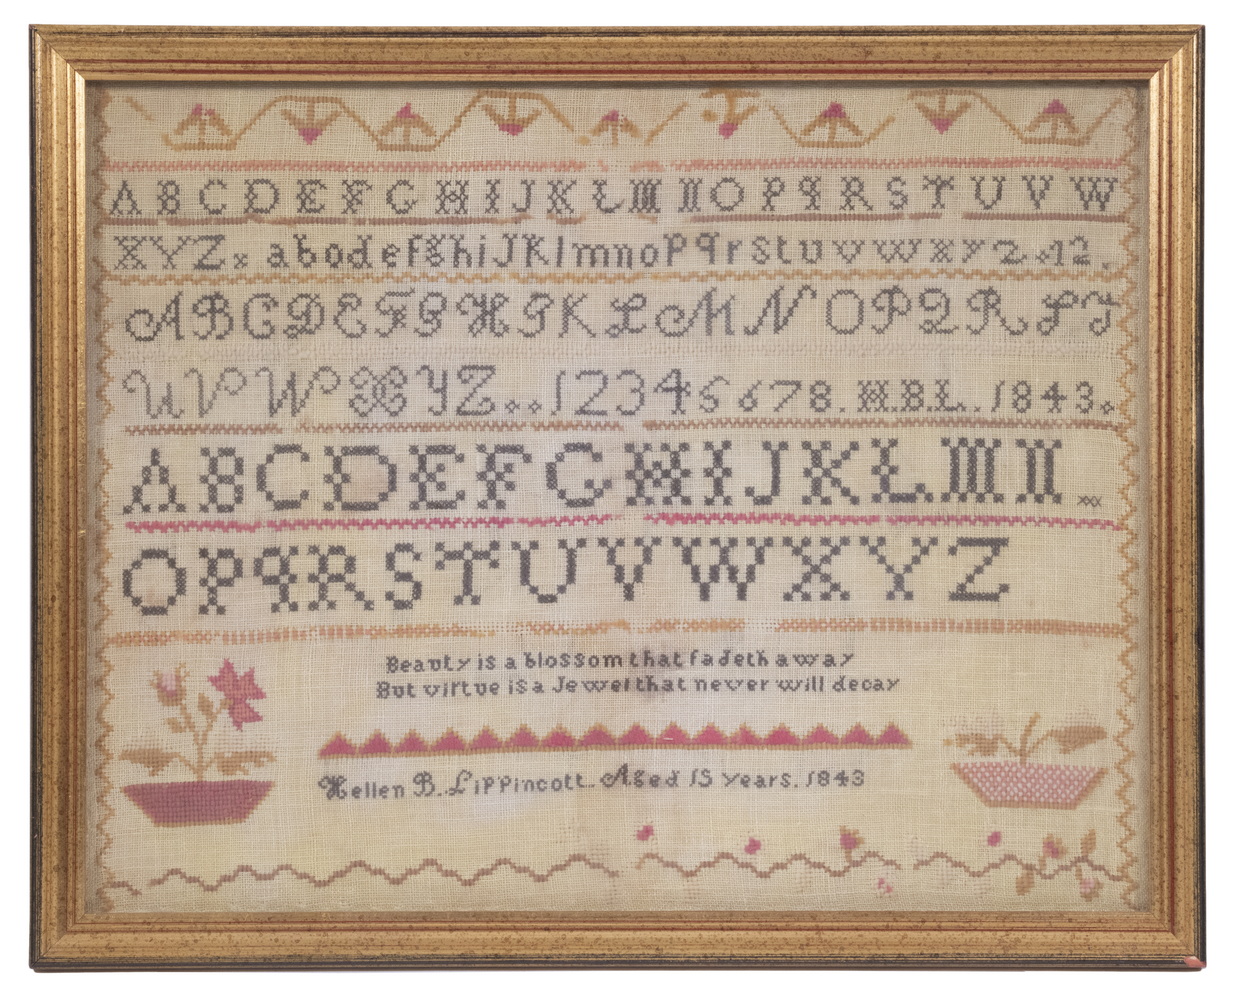 A B C D E F G H I J K L M N O P Q R S T U V W
X Y Z x a b c d e f g h i J K l m n o P q r s t u v w x y z & 1 2
A B C D E F G H I K L M N O P Q R S T
U V W X Y Z 1 2 3 4 5 6 7 8. H.B.L. 1843
A B C D E F G H I J K L M N xxx
O P Q R S T U V W X Y Z
Beauty is a blossom that fadeth away
But virtue is a Jewel that never will decay
Hellen B. Lippincott. Aged 15 years. 1843